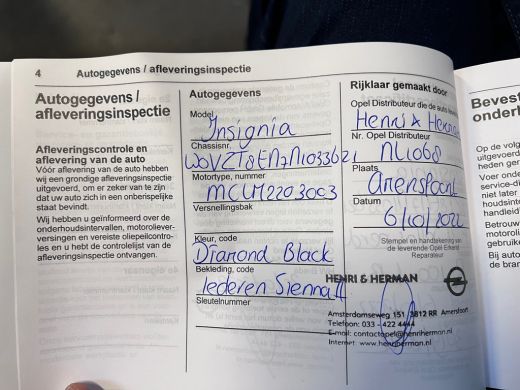 4 Autogegevens / afleveringsinspectie
Autogegevens /
afleveringsinspectie
Afleveringscontrole en
aflevering van de auto
Vóór aflevering van de auto hebben
wij een grondige afleveringsinspectie
uitgevoerd, om er zeker van te zijn
dat uw auto zich in een onberispelijke
staat bevindt.
Wij hebben u geïnformeerd over de
onderhoudsintervallen, motoroliever-
versingen en vereiste oliepeilcontro-
les en u hebt de controlelijst van de
afleveringsinspectie ontvangen.
Autogegevens
Model
Insignia
Chassisnr.
Motortype, nummer
Versnellingsbak
Kleur, code
Diamond Black
Bekleding, code
lederen Sienna II
Sleutelnummer
Rijklaar gemaakt door
Opel Distributeur die de auto
Henri & Herman
Nr. Opel Distributeur
NL1068
Plaats
Amersfoort
Datum
6/10/2022
Stempel en handtekening van
de leverende Opel Erkend
Reparateur
HENRI & HERMAN
Amsterdamseweg 151, 3812 RR Amersfoort
Telefoon: 033 - 422 4444
E-mail: contactopel@henriherman.nl
Internet: www.henriherman.nl
Bevest
onderh
Op de volg
uitgevoerd
heden ger
Voer onde
service-di
niet later
houdsint
handleid
Betrouw
motoroli
door de
Bij auto
de bran